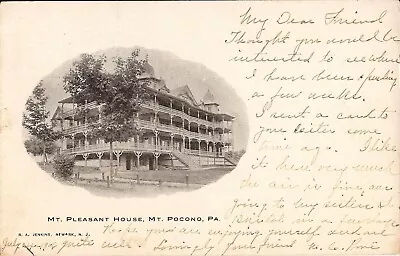 My Dear Friend
Thought you would be
interested to see where
I have been spending
a few weeks.
I sent a card to
your sister some
time ago. I like
it here very much
the air is fine, am
going to my sister's
in a
Hope you are enjoying yourself and are
quite well. Lovingly your friend
MT. PLEASANT HOUSE, MT. POCONO, PA.
R. A. JENKINS, NEWARK, N. J.